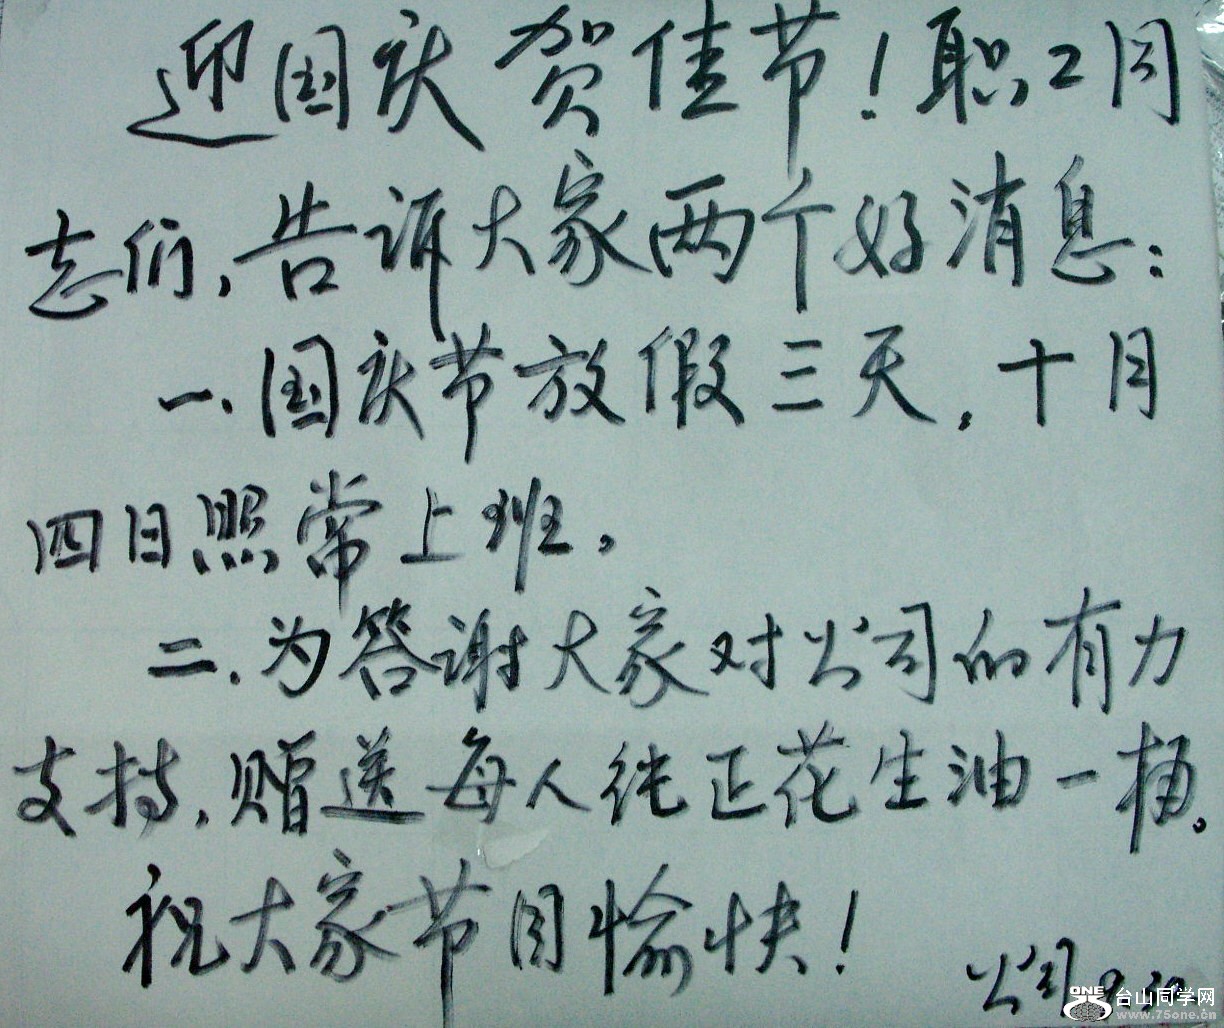 迎国庆 贺佳节！职工同
志们,告诉大家两个好消息:
一.国庆节放假三天,十月
四日照常上班。
二.为答谢大家对公司的有力
支持,赠送每人纯正花生油一桶。
祝大家节日愉快！
公司
ONE 台山同学网
www.75one.cn